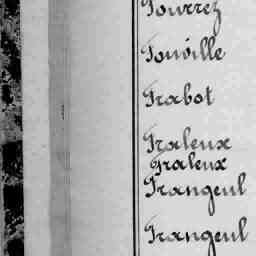 Tourrez
Touville
Trabot
Traleux
Traleux
Trangeul
Trangeul